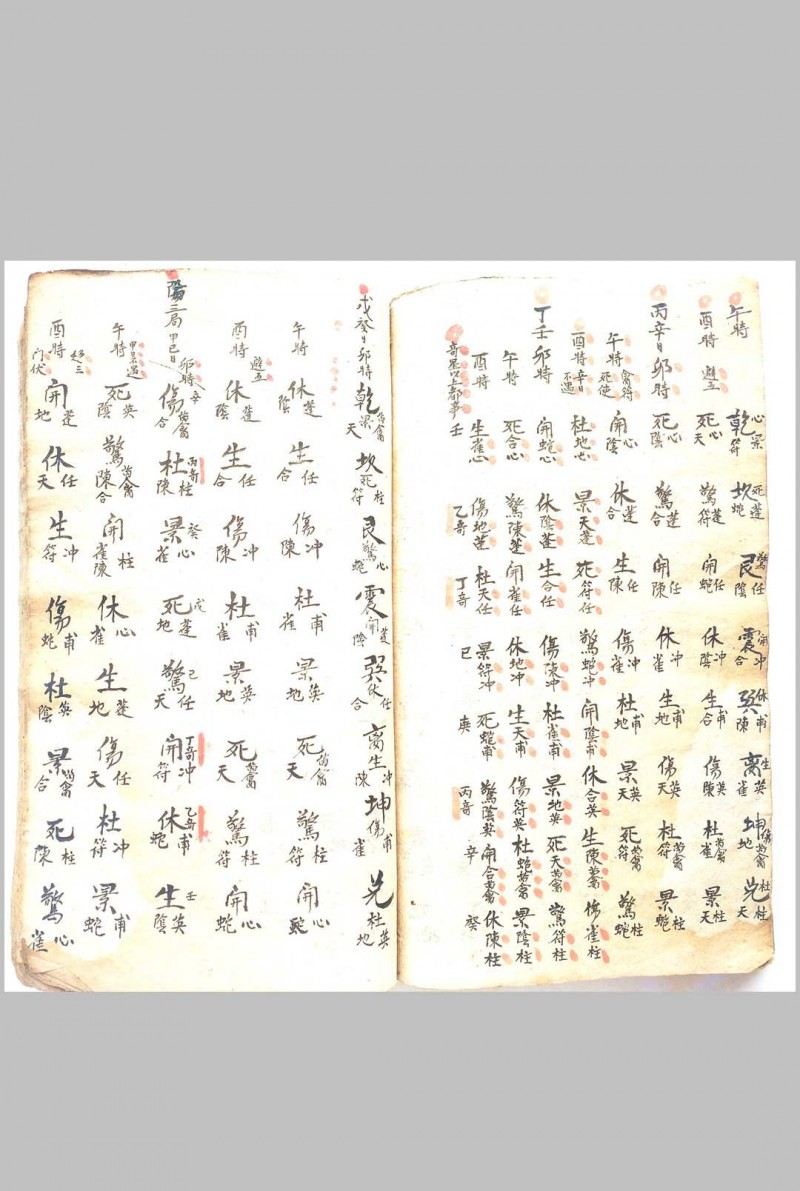 午時 乾心景符 坎死蓬蛇 艮驚任陰 震開冲合 巽休甫陳 离生英雀 坤傷芮禽地 兌杜柱天
酉時 遊五 死心天 驚蓬符 開任蛇 休冲陰 生甫合 傷英陳 杜芮禽雀 景柱天
丙辛日 卯時 死心陰 驚蓬合 開任陳 休冲雀 生甫地 傷英天 杜芮禽符 景柱蛇
午時 禽符死使 開心陰 休蓬合 生任陳 傷冲雀 杜甫地 景英天 死芮禽符 驚柱蛇
酉時 辛日不遇 杜地心 景天蓬 死符任 驚蛇冲 開陰甫 休合英 生陳芮禽 傷雀柱
丁壬 卯時 開蛇心 休陰蓬 生合任 傷陳冲 杜雀甫 景地英 死天芮禽 驚符柱
午時 死合心 驚陳蓬 開雀任 休地冲 生天甫 傷符英 杜蛇芮禽 景陰柱
酉時 生雀心 傷地蓬 杜天任 景符冲 死蛇甫 驚陰英 開合芮禽 休陳柱
壬 乙奇 丁奇 己 庚 丙奇 辛 癸
戊癸日 卯時 乾景芮禽天 坎死柱符 艮驚心蛇 震開蓬陰 巽休任合 离生冲陳 坤傷甫雀 兌杜英地
午時 休蓬陰 生任合 傷冲陳 杜甫雀 景英地 死芮禽天 驚柱符 開心蛇
酉時 遊五 休蓬陰 生任合 傷冲陳 杜甫雀 景英地 死芮禽天 驚柱符 開心蛇
陽三局 甲己日 卯時 辛 傷芮禽合 丙奇 杜柱陳 癸 景心雀 戊 死蓬地 己 驚任天 丁奇 開冲符 乙奇 休甫蛇 壬 生英陰
午時 甲日不遇 死英陰 驚芮禽陳合 開柱雀陳 休心雀 生蓬地 傷任天 杜冲符 景甫蛇
酉時 門伏 開蓬地 休任天 生冲符 傷甫蛇 杜英陰 景芮禽合 死柱陳 驚心雀